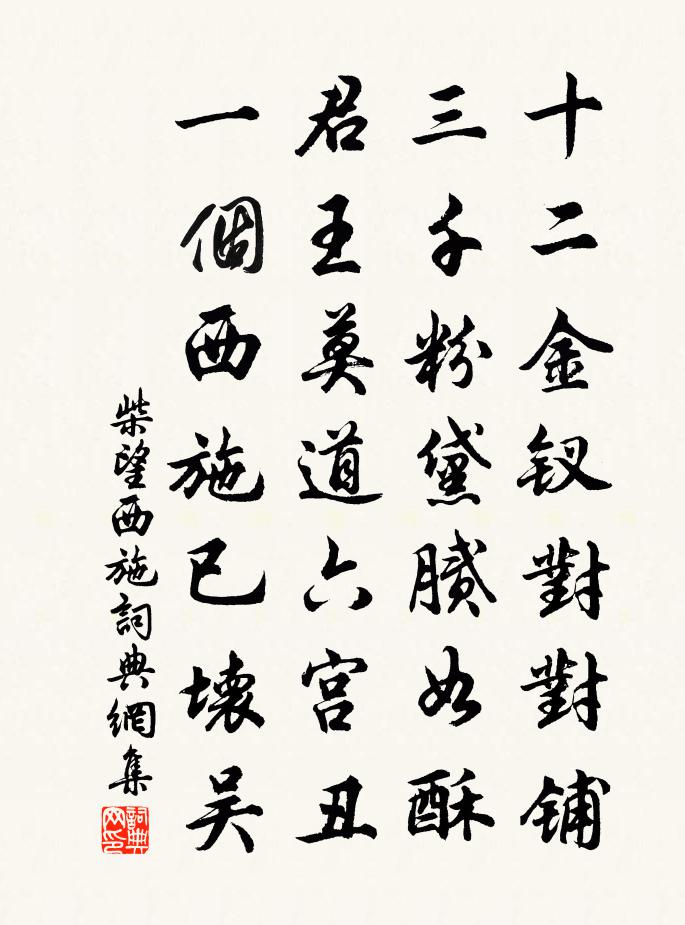 十二金釵對對鋪
三千粉黛膩如酥
君王莫道六宫丑
一個西施已壞吴
柴望西施詞典網集
詞典网印